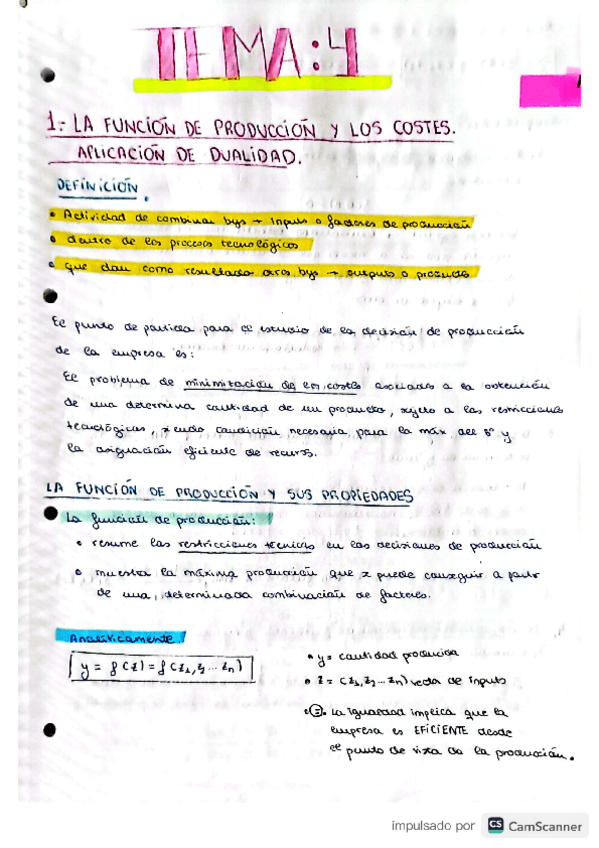 TEMA: 4
1.- LA FUNCIÓN DE PRODUCCIÓN Y LOS COSTES.
APLICACIÓN DE DUALIDAD.
DEFINICIÓN.
• Actividad de combinar bys → Inputs o factores de producción
• dentro de los procesos tecnológicos
• que dan como resultado otros bys → outputs o producto
El punto de partida para el estudio de la decisión de producción
de la empresa es:
El problema de minimización de los costes asociados a la obtención
de una determina cantidad de un producto, sujeto a las restricciones
tecnológicas, siendo condición necesaria para la máx del Bº y
la asignación eficiente de recursos.
LA FUNCIÓN DE PRODUCCIÓN Y SUS PROPIEDADES
La función de producción:
• resume las restricciones técnicas en las decisiones de producción
• muestra la máxima producción que x puede conseguir a partir
de una, determinada combinación de factores.
Analíticamente
y = f(z) = f(z1, z2 ... zn)
• y = cantidad producida
• z = (z1, z2 ... zn) vector de inputs
• (=). La igualdad implica que la
empresa es EFICIENTE desde
el punto de vista de la producción.
impulsado por CS CamScanner